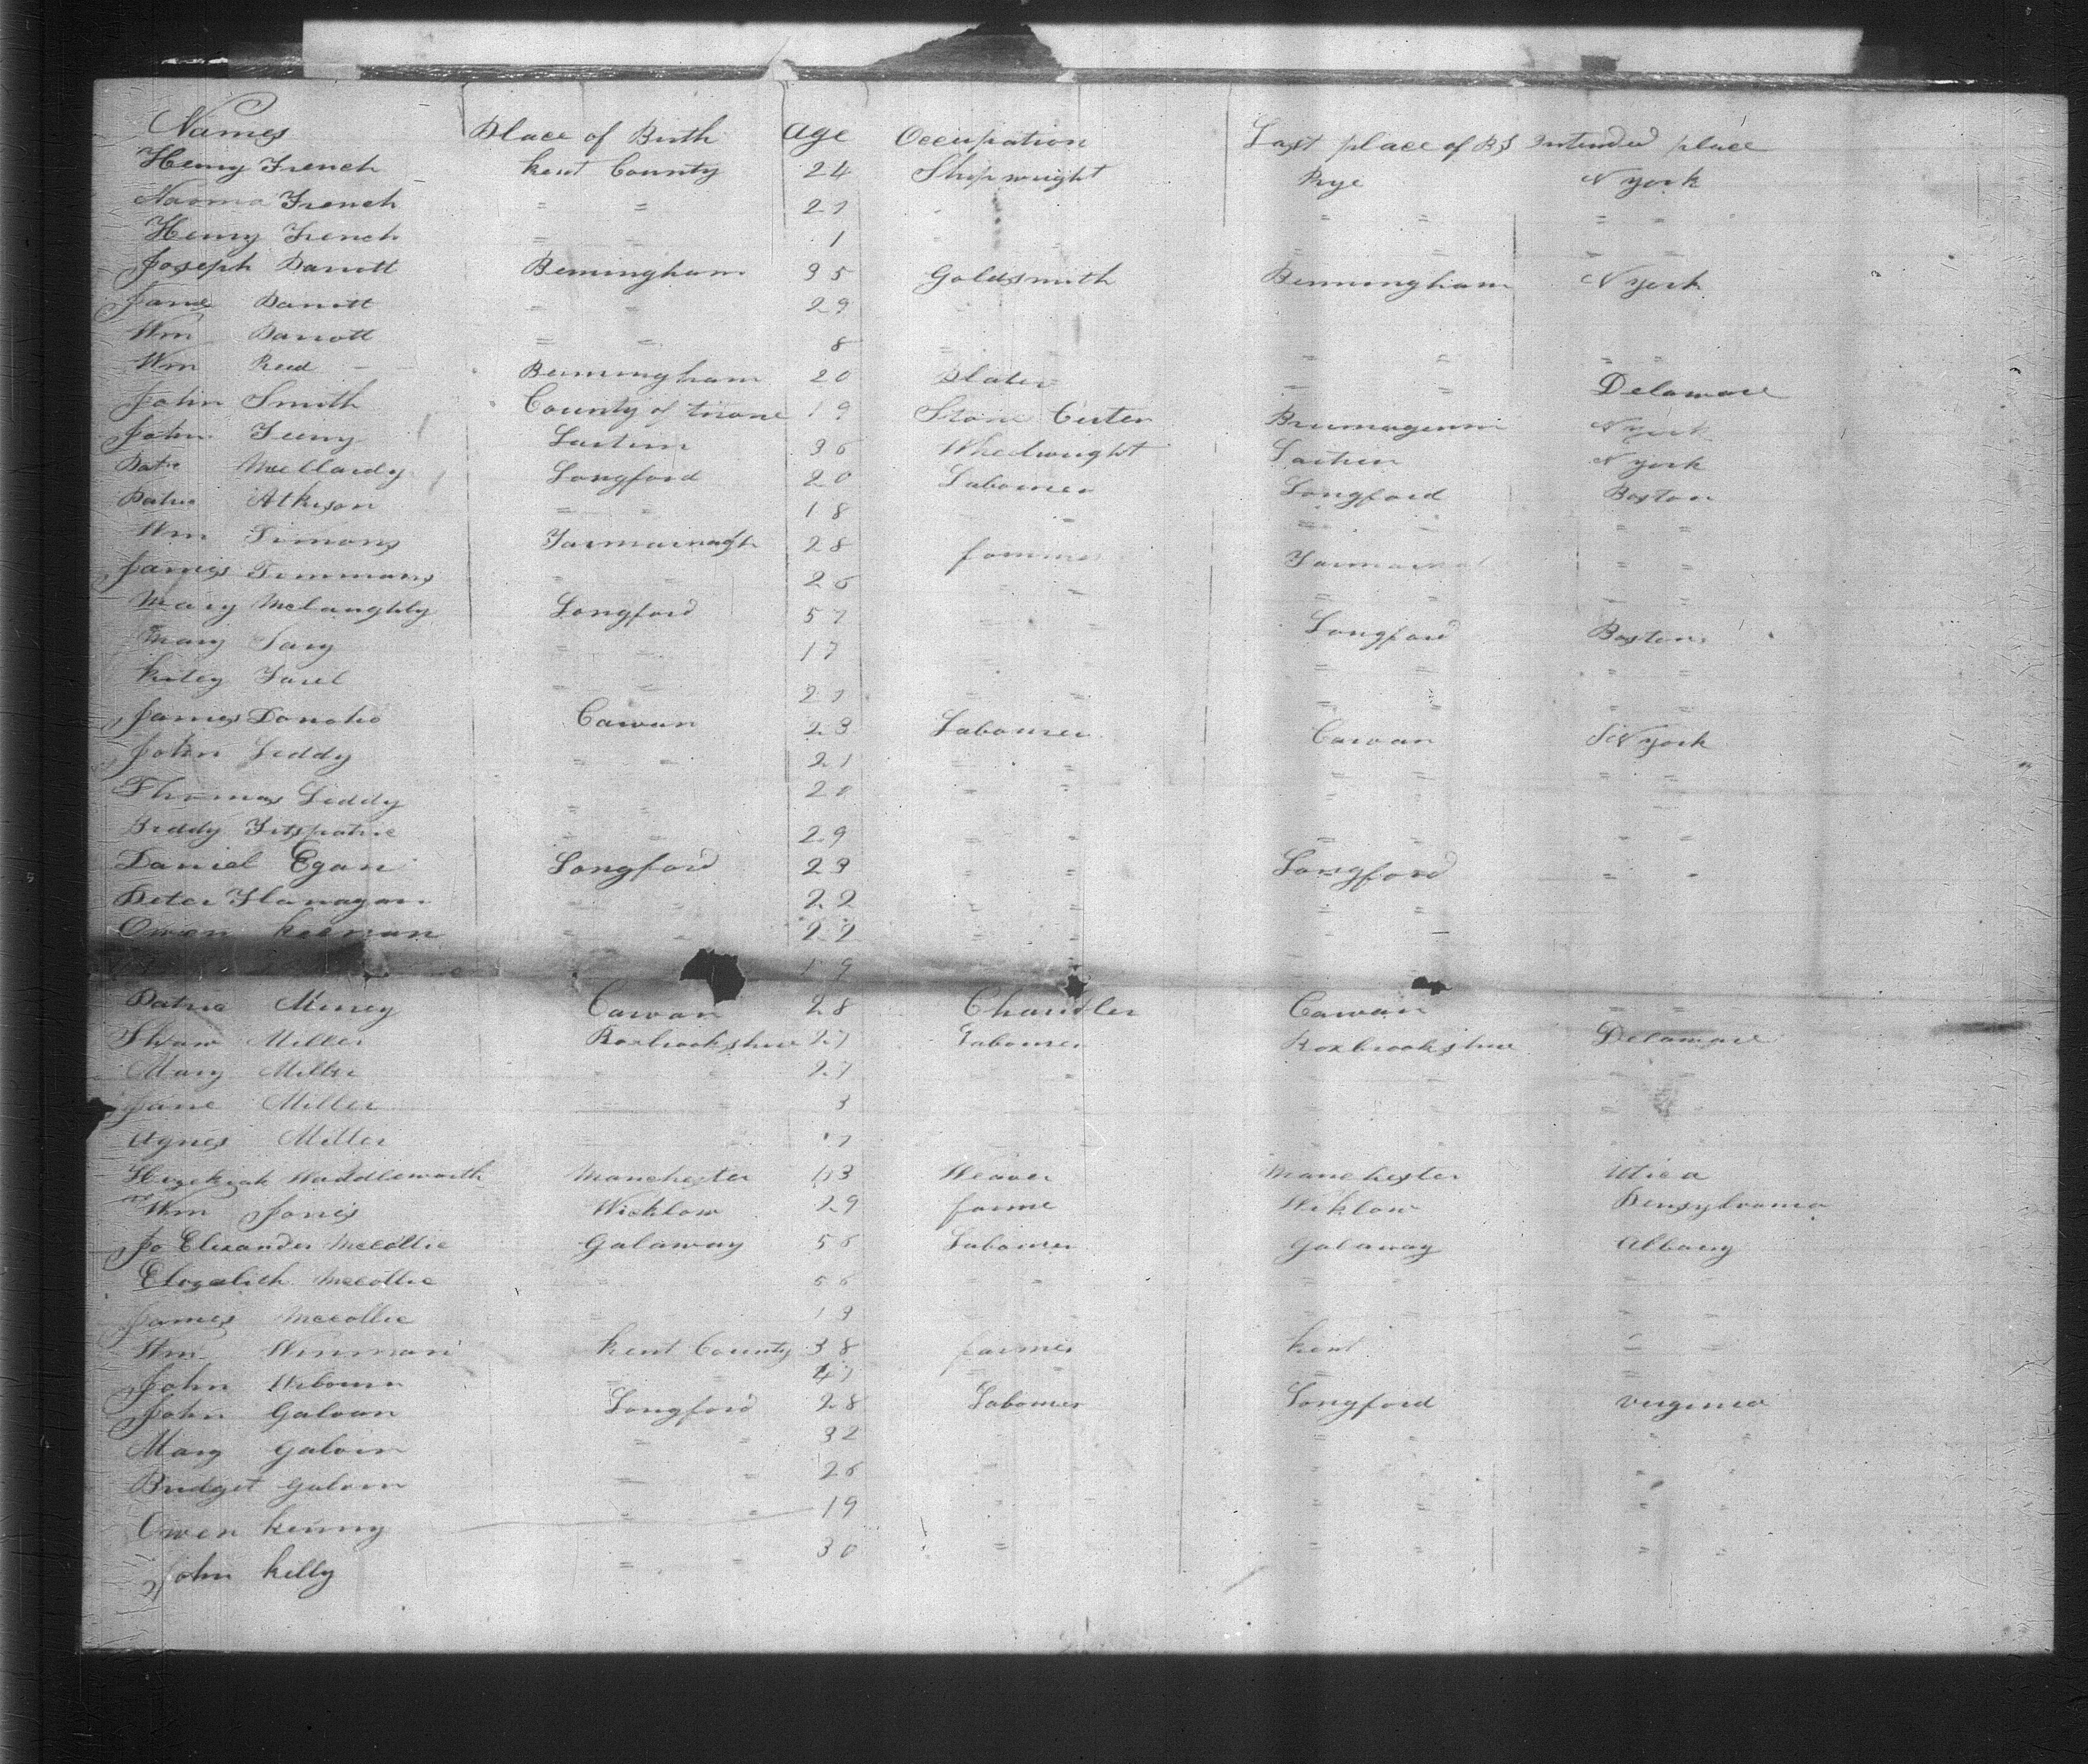 Names Place of Birth age Occupation Last place of RS Intended place
Henry French Kent County 24 Ship wright Rye N york
Naoma French = = 27 = = = =
Henry French = = 1 = = = =
Joseph Parrott Bemingham 35 Goldsmith Bermingham N york
Jane Parrott = = 29
Wm Parrott = = 8 = = = = =
Wm Reed Bermingham 20 Plater = = Delaware
John Smith County of tirone 19 Stone Cutter Brumagem N york
John Laitrim 36 Wheelwright Laitrim N york
Patric Longford 20 Labourer Longford Boston
Patric Atkison = = 18 = = = = =
Wm Timons 28 farmer
James Timmons = = 26 = = = = =
Mary Mclaughly Longford 57 = = Longford Boston
Mary = = 17 = = = =
= = 27 = = = = = =
James Donoho Cawan 23 Labourer Cawan N york
John Leddy = = 21 = = = = = =
Thomas Leddy = = 20 = = = =
Fitspatric = = 29 = = = = = =
Daniel Egan Longford 23 = = Longford = =
Peter Flanagan = = 22 = = = =
Owen Keernan = = 22 = = = =
19 =
Patric Cawan 28 Chandler Cawan = =
Miller Roxbrookshire 27 Labourer Roxbrookshire Delaware
Mary Miller = = 27 = = =
Jane Miller = = 3 = =
Agnes Miller = =
Hezekiah Waddleworth Manchester Weaver Manchester Utica
Wm Jones Wicklow 29 farme Wiklow Pensylvania
Jo Elexander Mccollie Galaway 56 Labourer Galaway Albany
Elizabeth Mccollie = 56 = = = = = =
James Mccollie = = = = =
Wm Winman Kent County 38 farmer Kent = =
John = = 47 = = = = =
John Galvan Longford 28 Labourer Longford Virginia
Mary Galvin = = 32 = = = =
Bridget Galvin = = 26 = = = =
Owen Kenny = = 19 = = = =
John Kelly = = 30 = = = = =